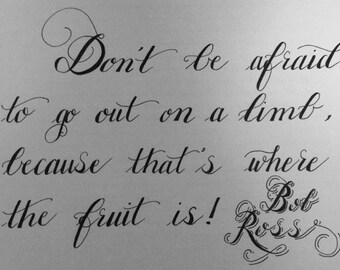 Don't be afraid
to go out on a limb,
because that's where
the fruit is! Bob
Ross